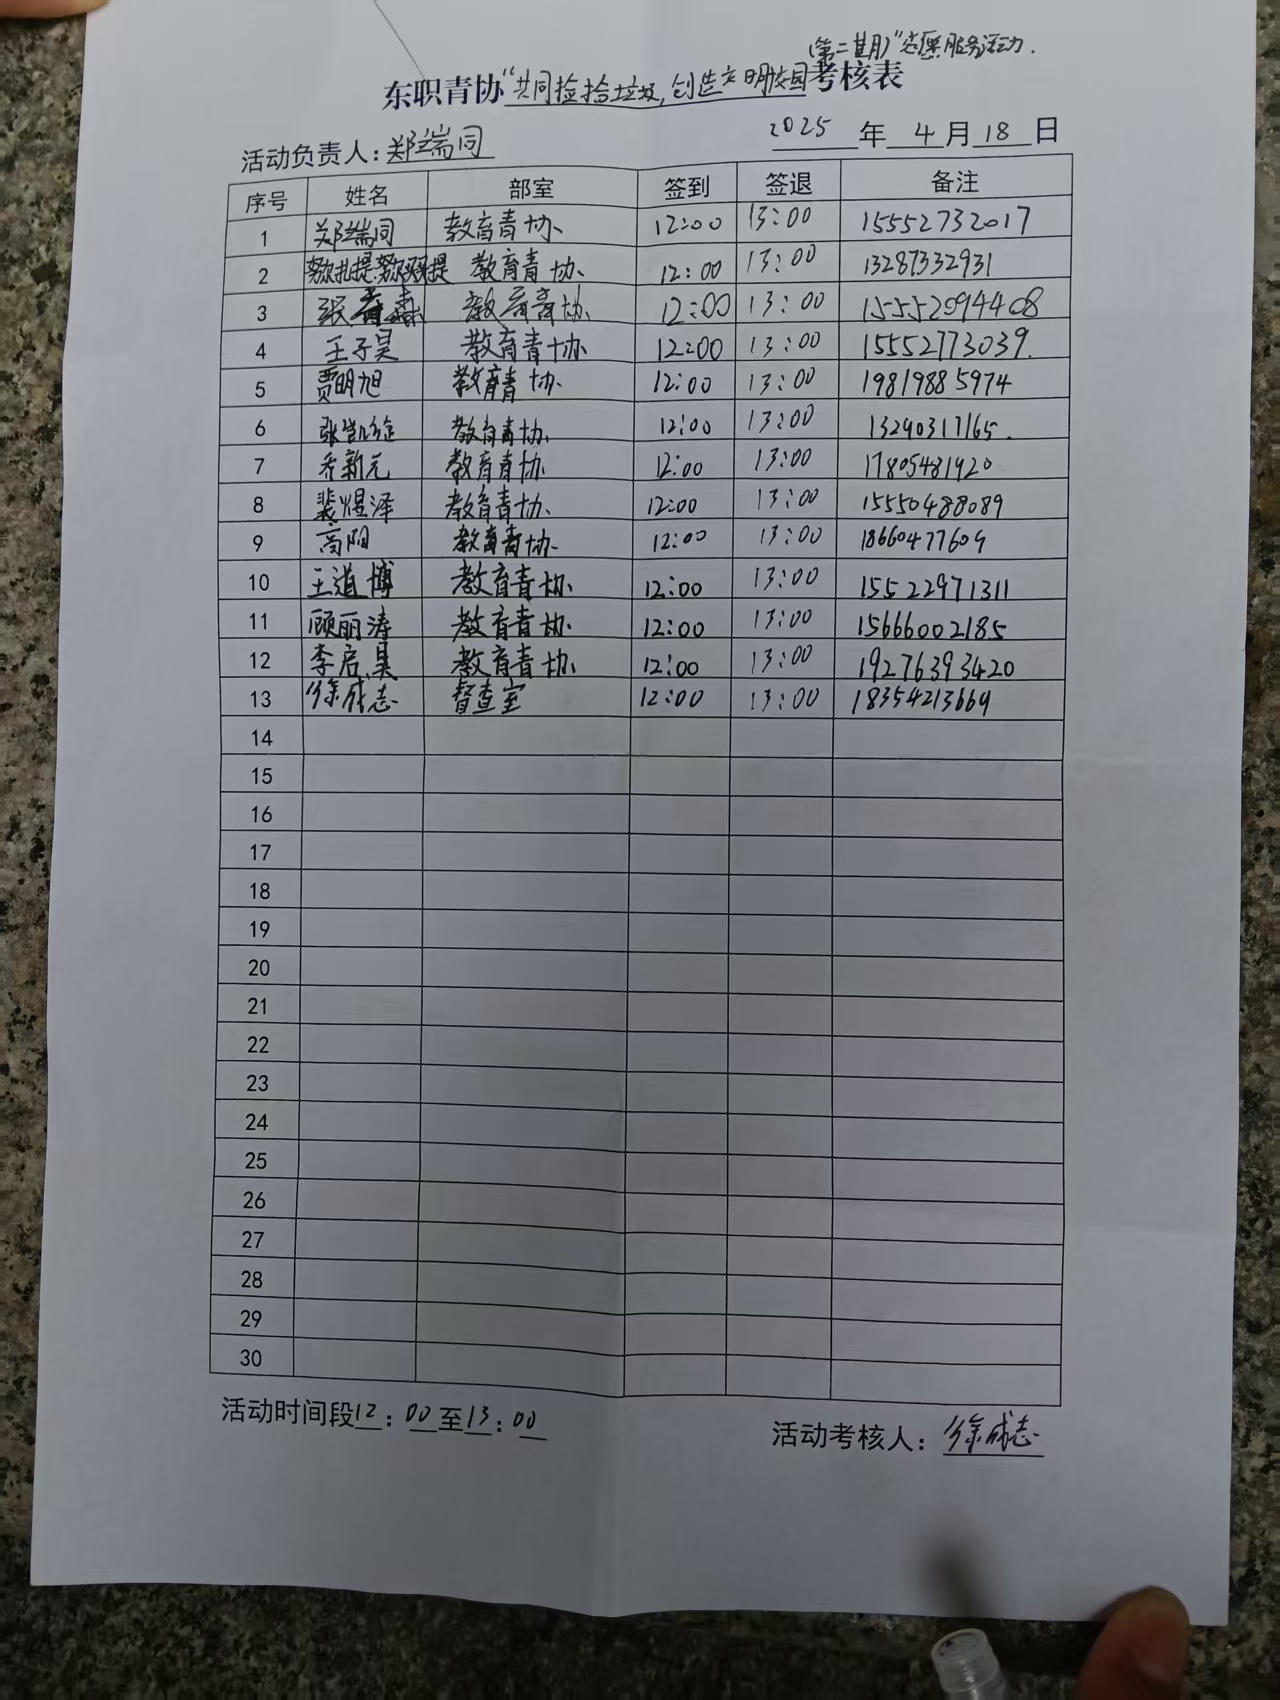 (第二期)"志愿服务活动.
东职青协"共同捡拾垃圾,创造文明校园考核表
活动负责人:郑端同 2025 年 4 月 18 日
序号 姓名 部室 签到 签退 备注
1 郑端同 教育青协 12:00 13:00 15552732017
2 教育青协 12:00 13:00 13287332931
3 教育青协 12:00 13:00 15552094408
4 王子昊 教育青协 12:00 13:00 15552773039
5 贾明旭 教育青协 12:00 13:00 19819885974
6 教育青协 12:00 13:00 13290317165
7 乔新元 教育青协 12:00 13:00 17805481920
8 裴煜泽 教育青协 12:00 13:00 15550488089
9 高阳 教育青协 12:00 13:00 18660477609
10 王道博 教育青协 12:00 13:00 15522971311
11 顾丽涛 教育青协 12:00 13:00 15666002185
12 李启昊 教育青协 12:00 13:00 19276393420
13 徐成志 督查室 12:00 13:00 18354213669
14
15
16
17
18
19
20
21
22
23
24
25
26
27
28
29
30
活动时间段12:00至13:00 活动考核人:徐成志